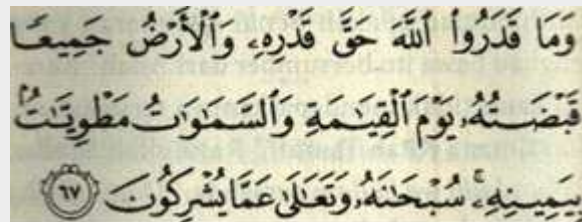 وَمَا قَدَرُوا۟ ٱللَّهَ حَقَّ قَدْرِهِۦ وَٱلْأَرْضُ جَمِيعًا
قَبْضَتُهُۥ يَوْمَ ٱلْقِيَٰمَةِ وَٱلسَّمَٰوَٰتُ مَطْوِيَّٰتٌۢ
بِيَمِينِهِۦ ۚ سُبْحَٰنَهُۥ وَتَعَٰلَىٰ عَمَّا يُشْرِكُونَ ٦٧